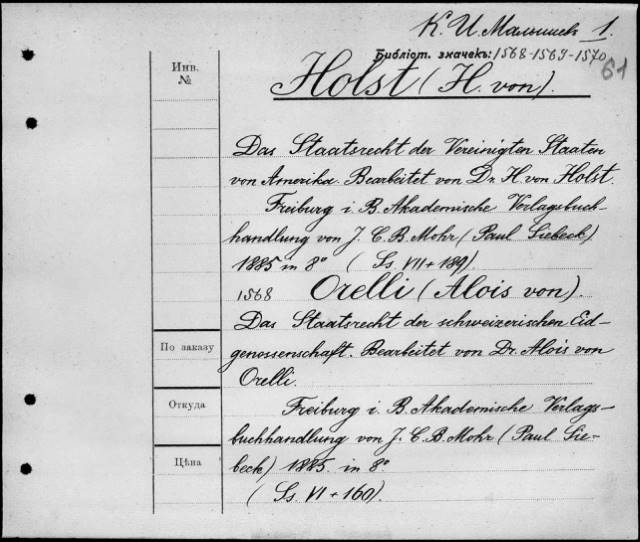 К. И. Малышев 1.
Библіот. значекъ: 1568-1569-1570
61
Инв.
№
Holst (H. von).
Das Staatsrecht der Vereinigten Staaten
von Amerika. Bearbeitet von Dr. H. von Holst.
Freiburg i. B. Akademische Verlagsbuch-
handlung von J. C. B. Mohr (Paul Siebeck)
1885 in 8° (Ss. VII + 189).
1568 Orelli (Alois von).
Das Staatsrecht der schweizerischen Eid-
genossenschaft. Bearbeitet von Dr. Alois von
Orelli.
Freiburg i. B. Akademische Verlags-
buchhandlung von J. C. B. Mohr (Paul Sie-
beck) 1885. in 8°
(Ss. VI + 160).
По заказу
Откуда
Цѣна